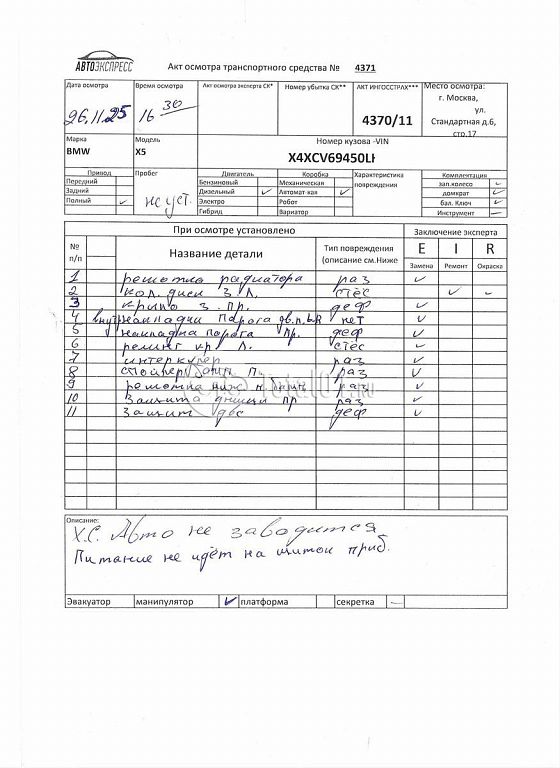 АВТОЭКСПРЕСС
Акт осмотра транспортного средства № 4371
Дата осмотра Время осмотра Акт осмотра эксперта СК* Номер убытка СК** АКТ ИНГОССТРАХ*** Место осмотра:
26.11.25 16 30 4370/11 г. Москва,
ул.
Стандартная д.6,
стр.17
Марка Модель Номер кузова -VIN
BMW X5 X4XCV69450L
Привод Пробег Двигатель Коробка Характеристика повреждения Комплектация
Передний Бензиновый Механическая зап.колесо
Задний не уст. Дизельный Автомат кая домкрат
Полный Электро Робот бал. Ключ
Гибрид Вариатор Инструмент
При осмотре установлено Заключение эксперта
№ п/п Название детали Тип повреждения (описание см.Ниже E I R
Замена Ремонт Окраска
1 решотка радиатора раз
2 кол. диск З Л. стёс
3 крыло з. пр. деф
4 внут накладки порога дв. п. L R нет
5 накладка порога пр. деф
6 релинг кр Л. стёс
7 интеркулер раз
8 раз
9 решотка ниж. раз
10 Защита днища пр раз
11 Защит двс деф
Описание:
Х.С. Авто не заводится
Питание не идёт на щиток приб.
Эвакуатор манипулятор платформа секретка